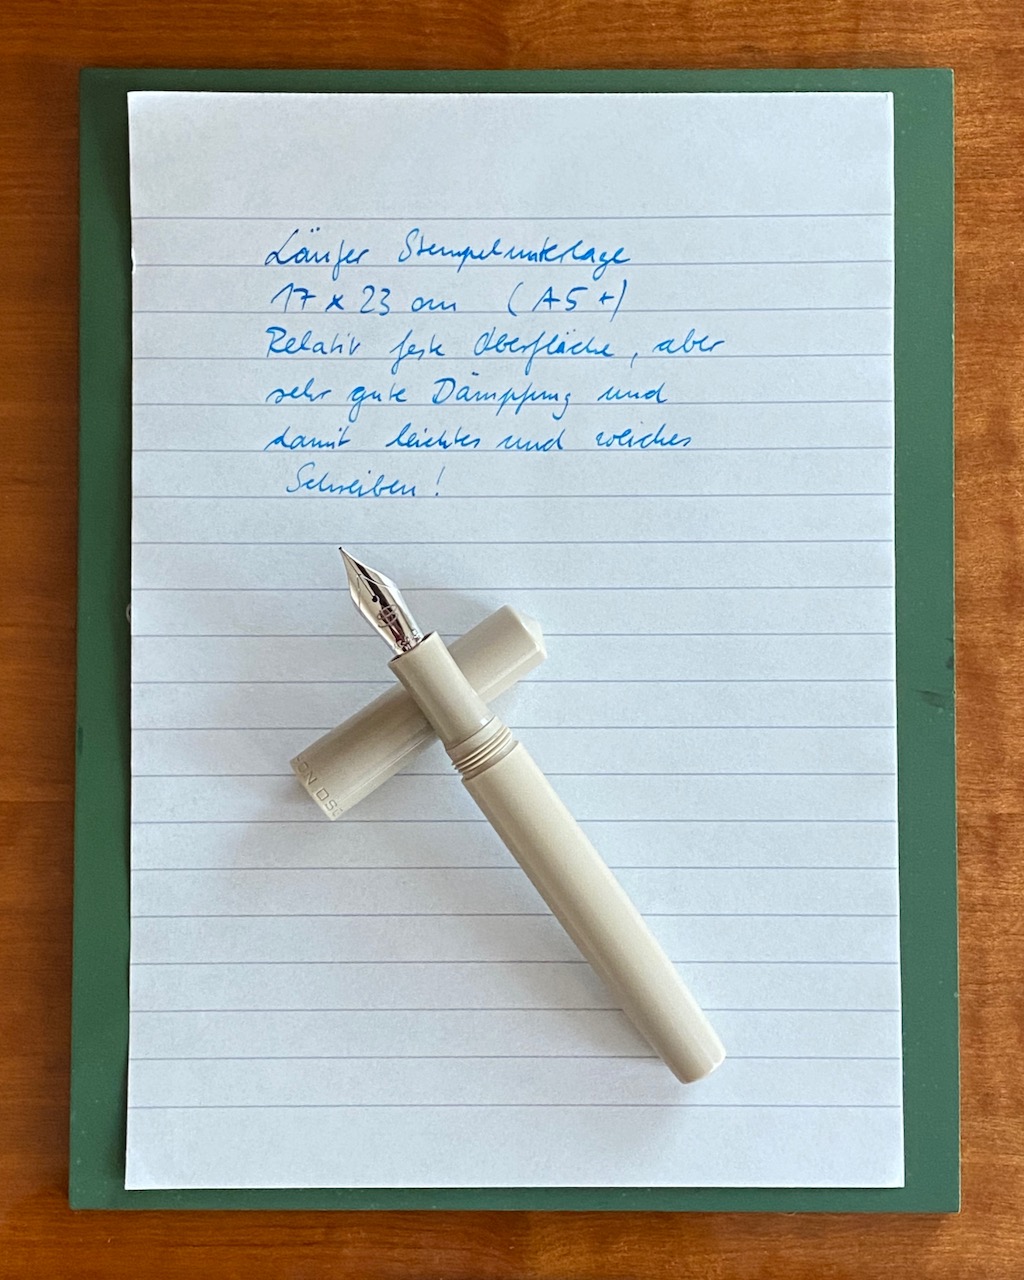 Läufer Stempelunterlage
17 x 23 cm (A5+)
Relativ feste Oberfläche, aber
sehr gute Dämpfung und
damit leichtes und weiches
Schreiben!